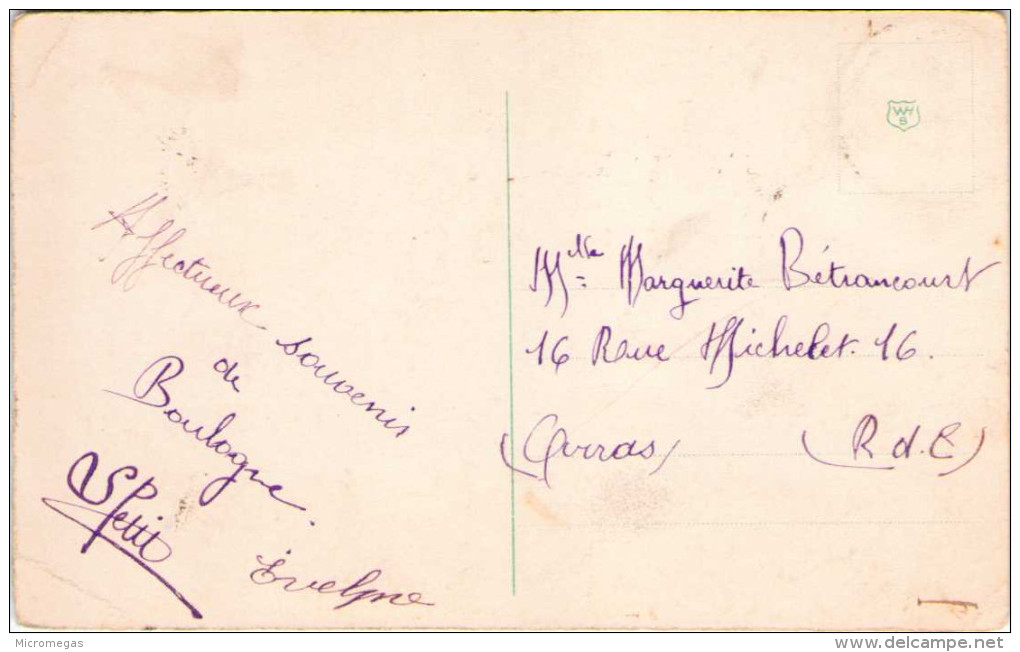 Affectueux souvenir
de
Boulogne.
Petit
Evelyne
Mlle Marguerite Bétrancourt
16 Rue Michelet. 16.
Arras (P. d. C)
WH
S
Micromegas
www.delcampe.net